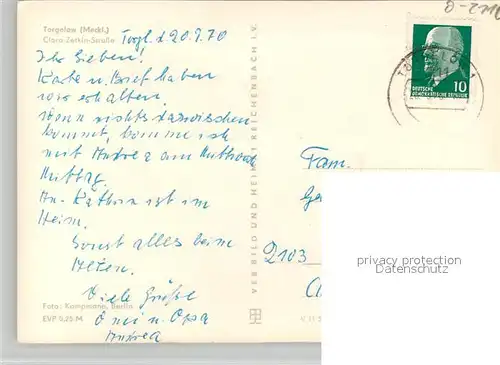 Torgelow (Meckl.)
Clara-Zetkin-Straße
Torgl. d 20.7.70
Ihr Lieben!
Karte u. Brief haben
wir erhalten.
Wenn nichts dazwischen
kommt, komme ich
mit Andrea am Mittwoch
Mittag.
An-Kathrin ist im
Heim.
Sonst alles beim
Alten.
Viele Grüße
Omi u. Opa
Andrea
Foto: Kampmann, Berlin
EVP 0,25 M
VEB BILD UND HEIMAT REICHENBACH I. V.
DEUTSCHE
DEMOKRATISCHE REPUBLIK
10
Fam.
2103
V 11
privacy protection
Datenschutz